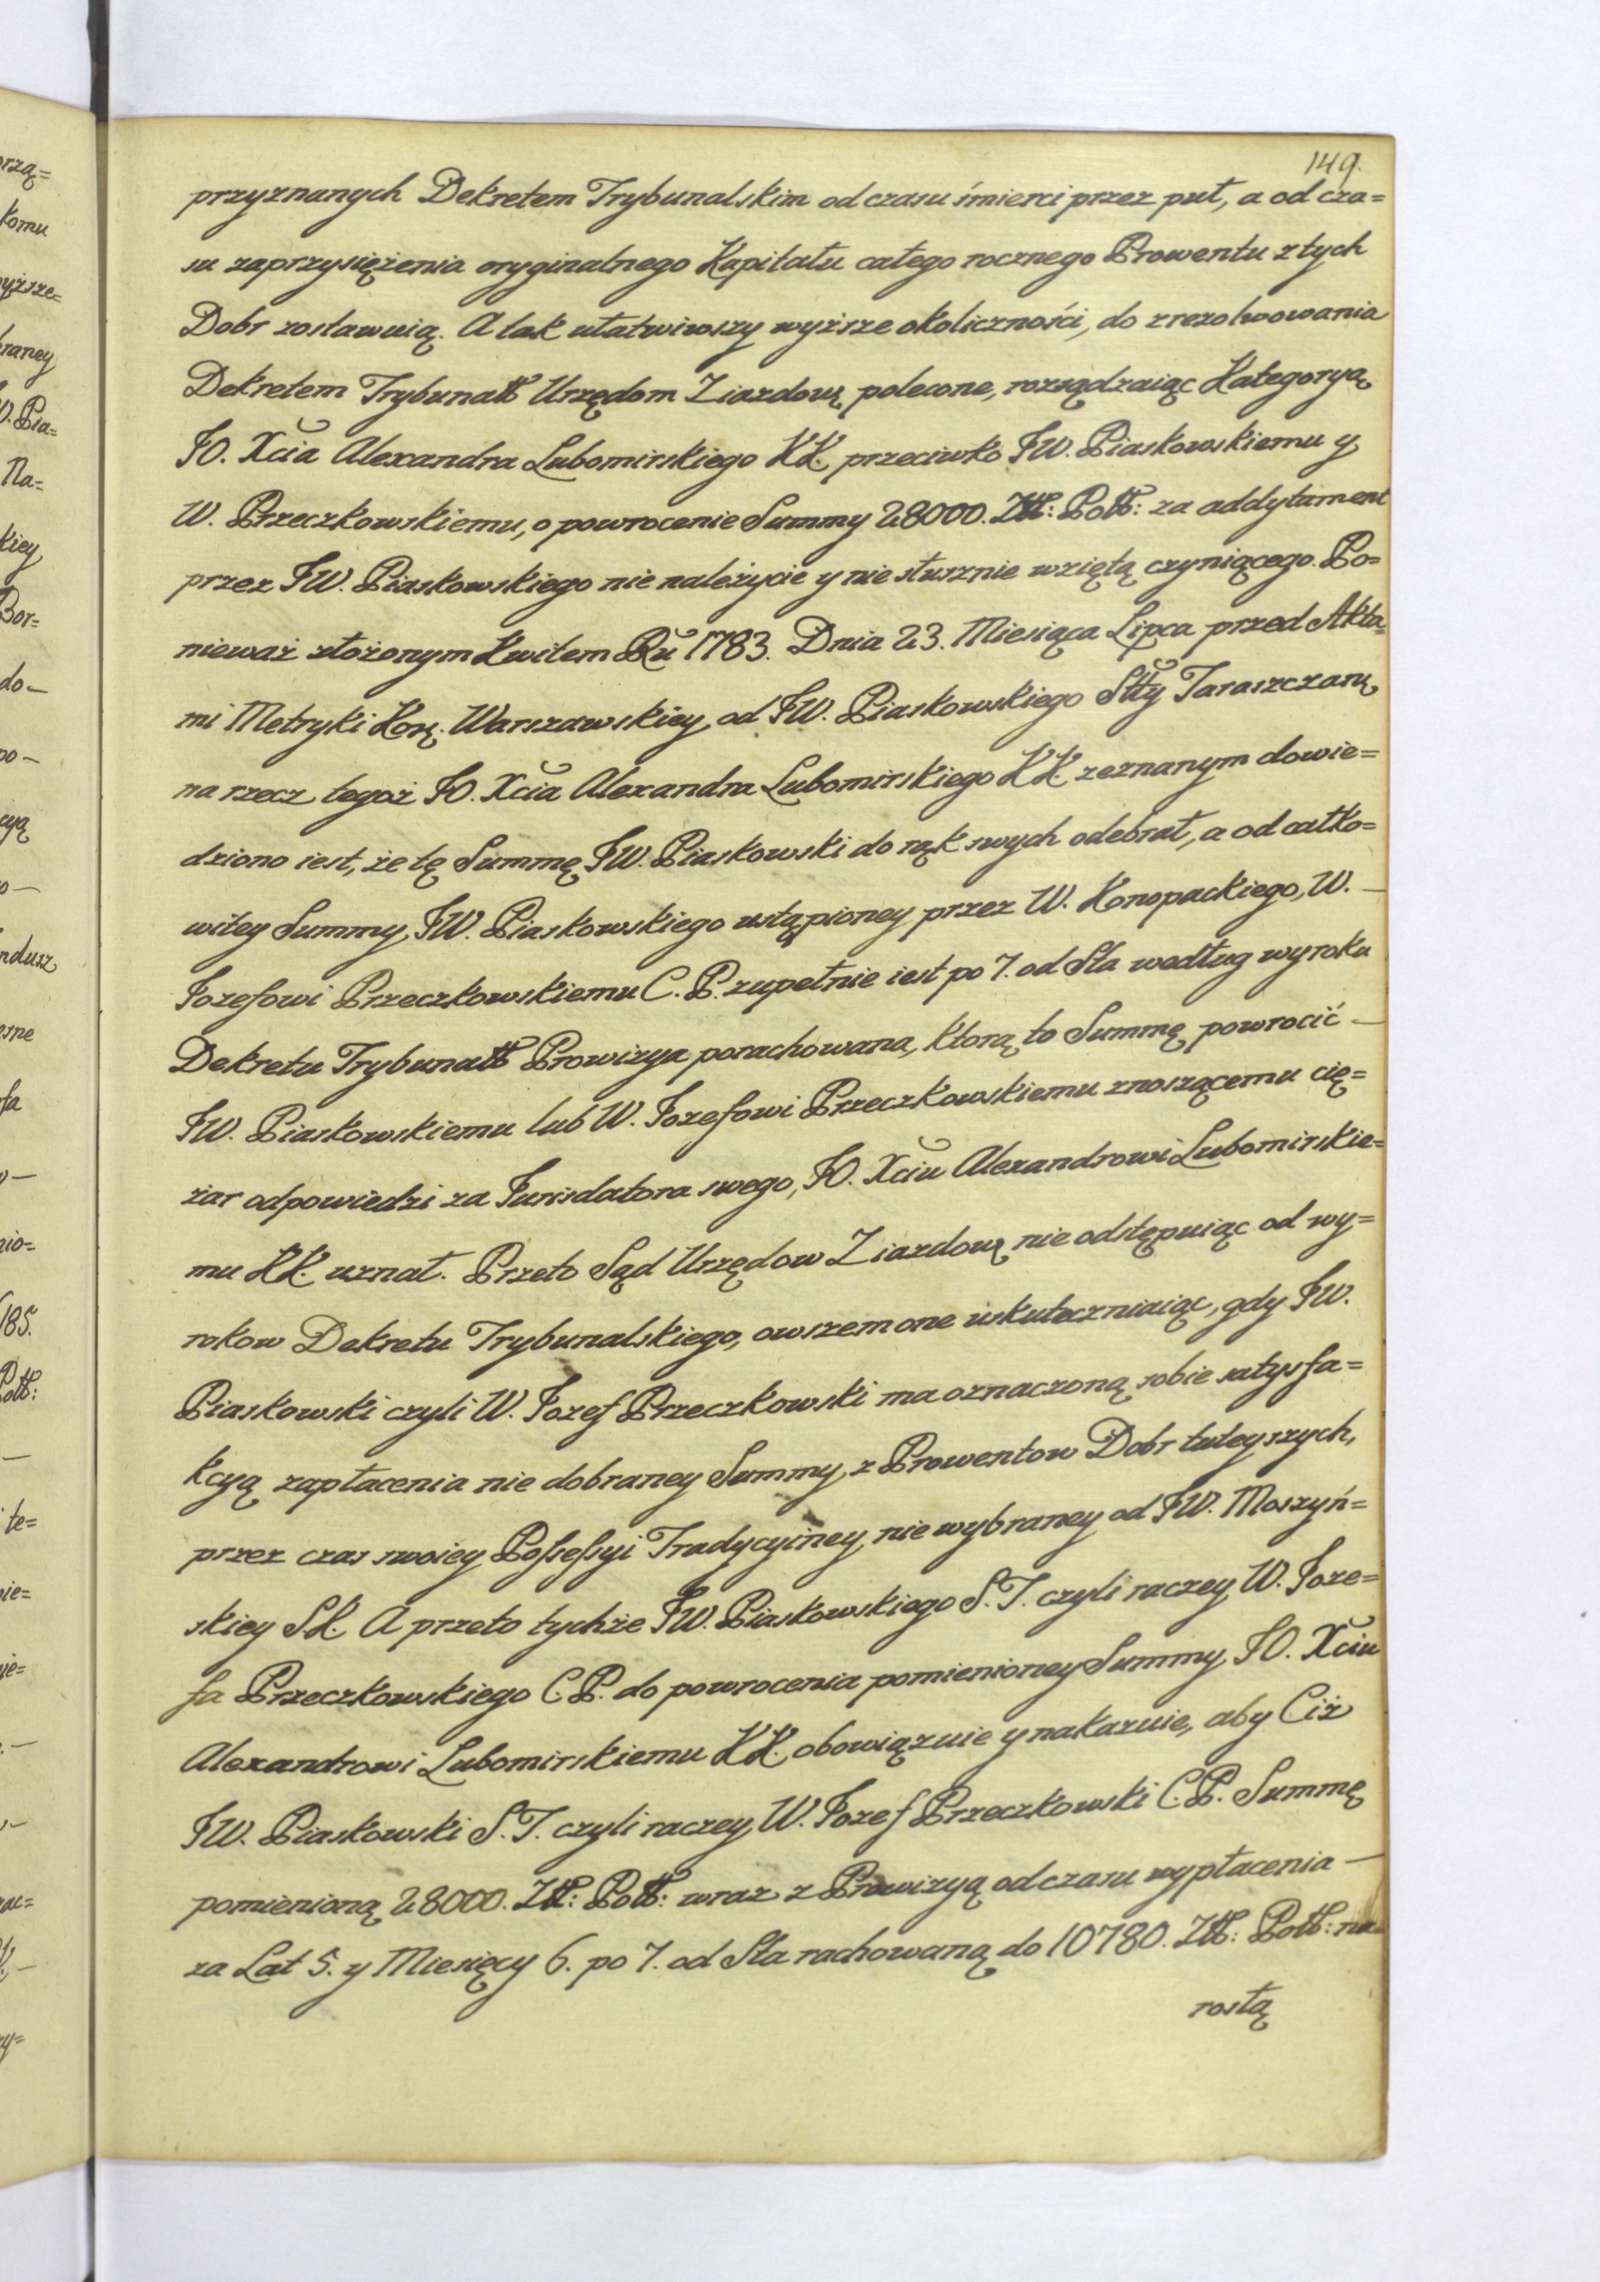 149.
przyznanych Dekretem Trybunalskim od czasu śmierci przez puł, a od cza=
su zaprzysiężenia oryginalnego Kapitału całego rocznego Prowentu z tych
Dobr zostawuią. A tak ułatwiwszy wyższe okoliczności, do zrezolwowania
Dekretem Trybunałł Urzędom Ziazdową polecone, rozsądzaiąc Kategoryą
JO. Xcia Alexandra Lubomirskiego KK. przeciwko JW. Piaskowskiemu y
W. Przeczkowskiemu, o powrocenie Summy 28000. Złł: Połł: za addytament
przez JW. Piaskowskiego nie należycie y nie słusznie wziętą czyniącego. Po=
nieważ złożonym Kwitem Ru 1783. Dnia 23. Miesiąca Lipca przed Akta=
mi Metryki Korą. Warszawskiey od JW. Piaskowskiego Stty Taraszczaną
na rzecz tegoż JO. Xcia Alexandra Lubomirskiego KK. zeznanym dowie=
dziono iest, że tę Summę JW. Piaskowski do rąk swych odebrał, a od całko=
witey Summy JW. Piaskowskiego ustąpioney przez W. Konopackiego, W. —
Jozefowi Przeczkowskiemu C. P. zupełnie iest po 7. od Sta według wyroku
Dekretu Trybunałł Prowizya porachowana, ktorą to Summę powrocić —
JW. Piaskowskiemu lub W. Jozefowi Przeczkowskiemu znoszącemu cię=
żar odpowiedzi za Jurisdatora swego, JO. Xciu Alexandrowi Lubomirskie=
mu KK. uznał. Przeto Sąd Urzędow Ziazdową nie odstępuiąc od wy=
rokow Dekretu Trybunalskiego, owszem one uskuteczniaiąc, gdy JW.
Piaskowski czyli W. Jozef Przeczkowski ma oznaczoną sobie satysfa=
kcyą zapłacenia nie dobraney Summy z Prowentow Dobr tuteyszych,
przez czas swoiey Possessyi Tradycyiney nie wybraney od JW. Moszyń=
skiey SK. A przeto tychże JW. Piaskowskiego S. T. czyli raczey W. Joze=
fa Przeczkowskiego C.P. do powrocenia pomienioney Summy JO. Xciu
Alexandrowi Lubomirskiemu KK. obowiązuie y nakazuie, aby Ciż
JW. Piaskowski S. T. czyli raczey W. Jozef Przeczkowski C.P. Summę
pomienioną 28000. Złł: Połł: wraz z Prowizyą od czasu wypłacenia —
za Lat 5. y Miesięcy 6. po 7. od Sta rachowaną do 10780. Złł: Połł: na=
rosłą